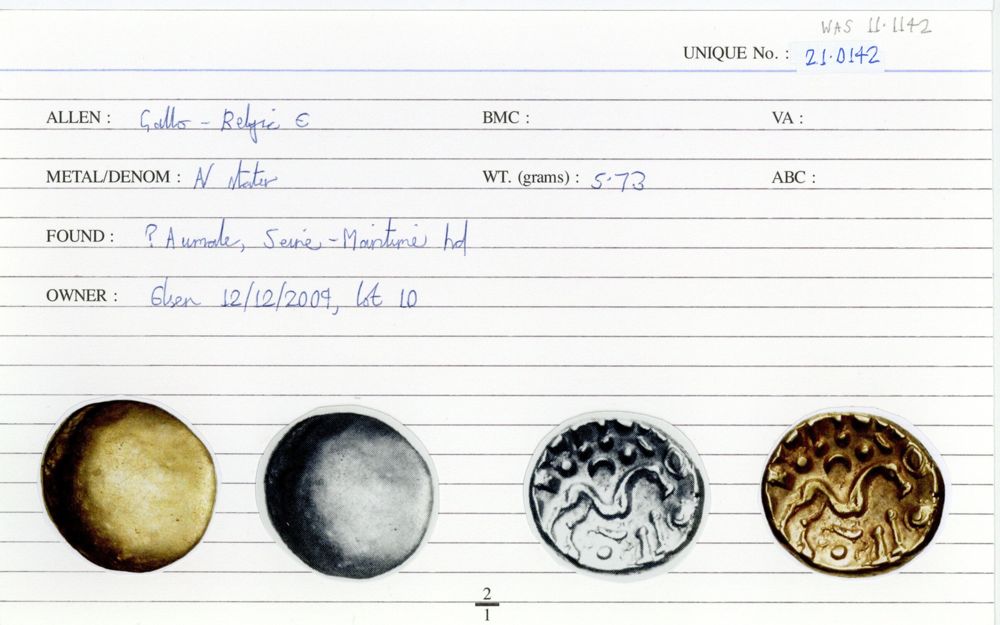 WAS 11.1142
UNIQUE No. : 21.0142
ALLEN : Gallo - Belgic E BMC : VA :
METAL/DENOM : N stater WT. (grams) : 5.73 ABC :
FOUND : ? Aumale, Seine - Maritime hd
OWNER : Elsen 12/12/2009, lot 10
2
1